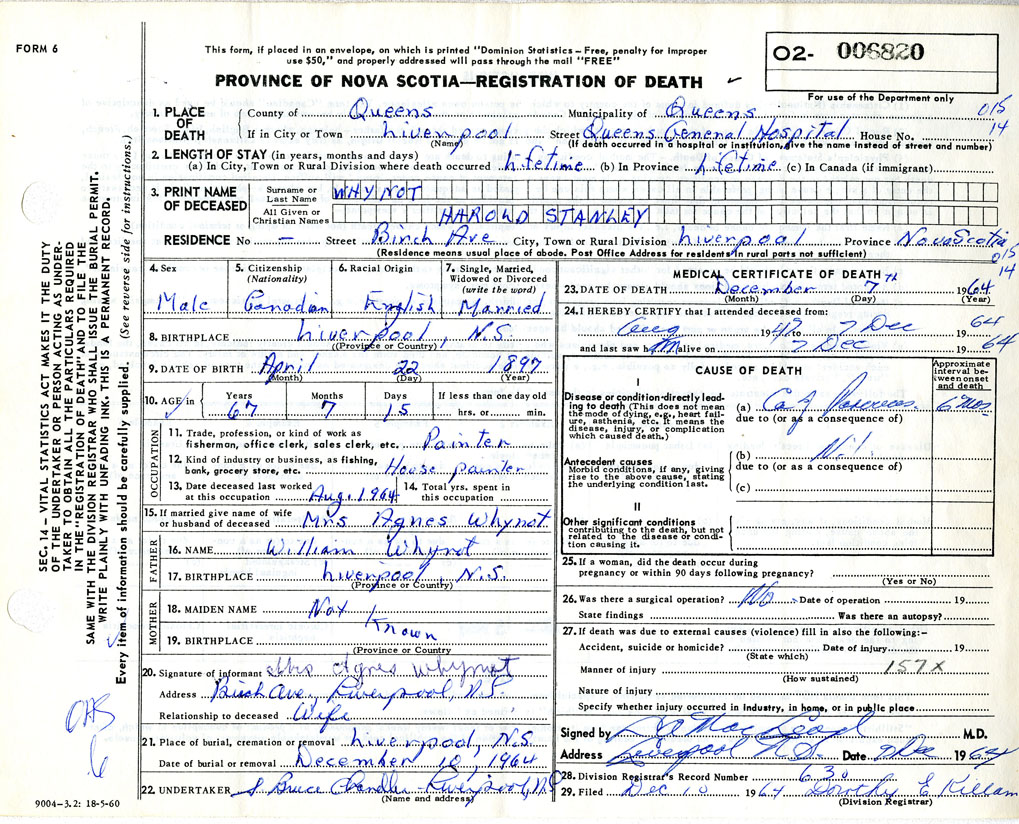 FORM 6
This form, if placed in an envelope, on which is printed "Dominion Statistics – Free, penalty for improper
use $50," and properly addressed will pass through the mail "FREE"
PROVINCE OF NOVA SCOTIA—REGISTRATION OF DEATH
02- 006820
For use of the Department only
015
14
1. PLACE OF DEATH
County of Queens Municipality of Queens
If in City or Town Liverpool Street Queens General Hospital House No.
(Name) (If death occurred in a hospital or institution, give the name instead of street and number)
2. LENGTH OF STAY (in years, months and days)
(a) In City, Town or Rural Division where death occurred Lifetime (b) In Province Lifetime (c) In Canada (if immigrant)
3. PRINT NAME OF DECEASED
Surname or Last Name WHYNOT
All Given or Christian Names HAROLD STANLEY
RESIDENCE No – Street Birch Ave City, Town or Rural Division Liverpool Province Nova Scotia
(Residence means usual place of abode. Post Office Address for residents in rural parts not sufficient)
015
14
4. Sex Male
5. Citizenship (Nationality) Canadian
6. Racial Origin English
7. Single, Married, Widowed or Divorced (write the word) Married
8. BIRTHPLACE Liverpool, N.S.
(Province or Country)
9. DATE OF BIRTH April 22 1897
(Month) (Day) (Year)
10. AGE Years 67 Months 7 Days 15 If less than one day old
hrs. or min.
OCCUPATION
11. Trade, profession, or kind of work as
fisherman, office clerk, sales clerk, etc. Painter
12. Kind of industry or business, as fishing,
bank, grocery store, etc. House painter
13. Date deceased last worked
at this occupation Aug. 1964
14. Total yrs. spent in
this occupation
15. If married give name of wife
or husband of deceased Mrs Agnes Whynot
FATHER
16. NAME William Whynot
17. BIRTHPLACE Liverpool, N.S.
(Province or Country)
MOTHER
18. MAIDEN NAME Not
Known
19. BIRTHPLACE
(Province or Country
20. Signature of informant Mrs Agnes Whynot
Address Birch Ave, Liverpool N.S.
Relationship to deceased Wife
21. Place of burial, cremation or removal Liverpool, N.S.
Date of burial or removal December 10, 1964
22. UNDERTAKER S Bruce Chandler Liverpool, N.S
(Name and address)
MEDICAL CERTIFICATE OF DEATH
23. DATE OF DEATH December 7th 1964
(Month) (Day) (Year)
24. I HEREBY CERTIFY that I attended deceased from:
Aug 1947 to 7 Dec 1964
and last saw him alive on 7 Dec 1964
CAUSE OF DEATH
Approximate interval between onset and death
I
Disease or condition directly leading to death (This does not mean the mode of dying, e.g., heart failure, asthenia, etc. It means the disease, injury, or complication which caused death.)
(a) Ca of Pancreas. 6 mos
due to (or as a consequence of)
Antecedent causes
Morbid conditions, if any, giving rise to the above cause, stating the underlying condition last.
(b) Nil.
due to (or as a consequence of)
(c)
II
Other significant conditions
contributing to the death, but not related to the disease or condition causing it.
25. If a woman, did the death occur during
pregnancy or within 90 days following pregnancy?
(Yes or No)
26. Was there a surgical operation? No Date of operation 19
State findings Was there an autopsy?
27. If death was due to external causes (violence) fill in also the following:–
Accident, suicide or homicide? Date of injury 19
(State which)
Manner of injury 157X
(How sustained)
Nature of injury
Specify whether injury occurred in industry, in home, or in public place
Signed by MacLeod M.D.
Address Liverpool N.S. Date 7 Dec 1964
28. Division Registrar's Record Number 630
29. Filed Dec 10 1964 Dorothy E Killam
(Division Registrar)
SEC. 14 – VITAL STATISTICS ACT MAKES IT THE DUTY
OF THE UNDERTAKER OR PERSON ACTING AS UNDER-
TAKER TO OBTAIN ALL THE PARTICULARS REQUIRED
IN THE "REGISTRATION OF DEATH" AND TO FILE THE
SAME WITH THE DIVISION REGISTRAR WHO SHALL ISSUE THE BURIAL PERMIT.
WRITE PLAINLY WITH UNFADING INK. THIS IS A PERMANENT RECORD.
Every item of information should be carefully supplied. (See reverse side for instructions.)
6
9004–3.2: 18-5-60